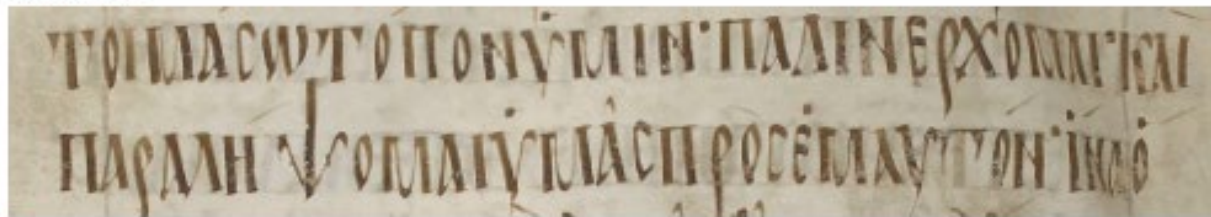 ΤΟΙΜΑCωΤΟΠΟΝΥ̇ΜΙΝ·ΠΑΛΙΝΕΡΧΟΜΑΙ·ΚΑΙ
ΠΑΡΑΛΗΨΟΜΑΙΥ̇ΜΑCΠΡΟCΕ̇ΜΑΥΤΟΝ·ΙΝΑΟ̇